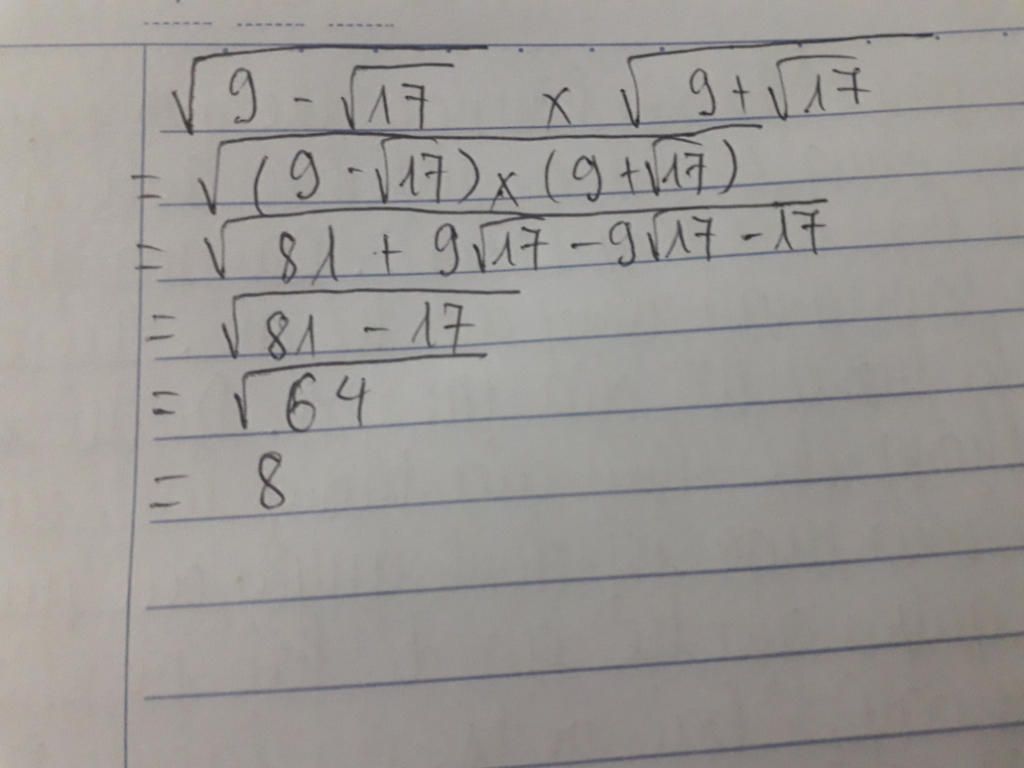 √(9 - √17) x √(9 + √17)
= √((9 - √17) x (9 + √17))
= √(81 + 9√17 - 9√17 - 17)
= √(81 - 17)
= √64
= 8